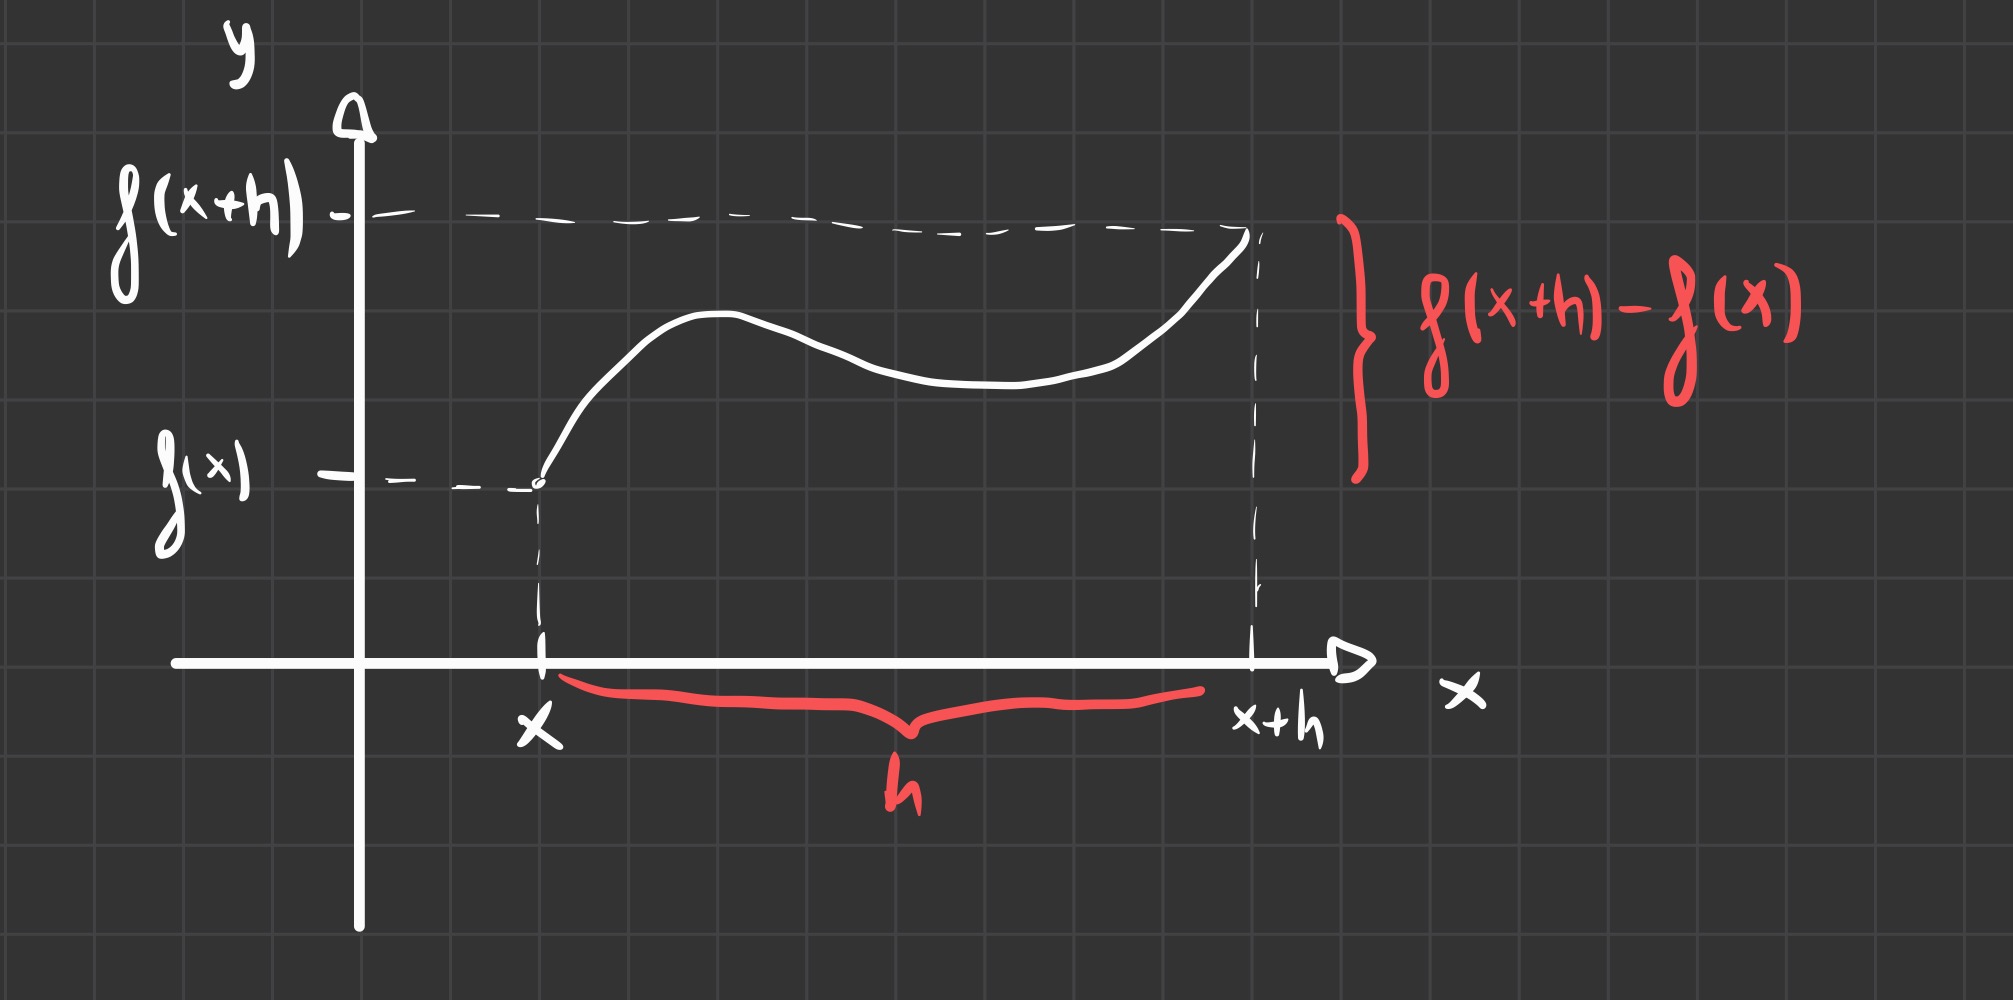 y
f(x+h)
f(x+h) - f(x)
f(x)
x
x+h
x
h